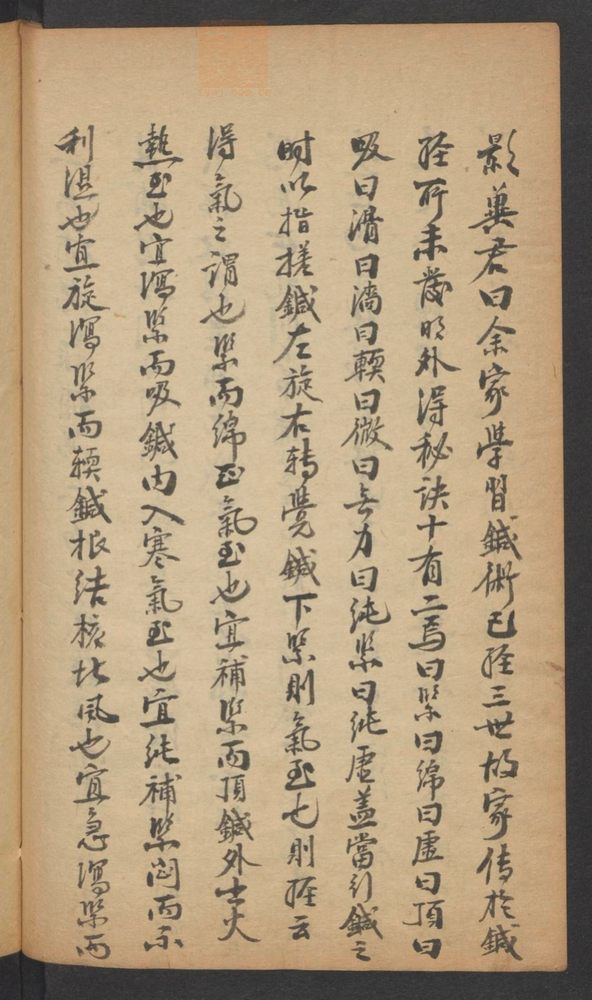 影蓴君曰余家學習鍼術已經三世故家傳於鍼
經所未發明外得秘訣十有二焉曰緊曰綿曰虛曰頂曰
吸曰滑曰濇曰輭曰微曰無力曰純緊曰純虛蓋當行鍼之
時以指搓鍼左旋右轉覺鍼下緊則氣至也則經云
得氣之謂也緊而綿正氣至也宜補緊而頂鍼外出火
熱至也宜瀉緊而吸鍼內入寒氣至也宜純補緊澀而不
利濕也宜旋瀉緊而輭鍼根結核此風也宜急瀉緊而